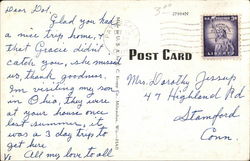 Dear Dot,
Glad you had
a nice trip home, &
that Gracie didn't
catch you, she missed
us, thank goodness.
Im visiting my son
in Ohio, they were
at your house once
last summer, it
was a 3 day trip to
get here
All my love to all
POST CARD
Mrs. Dorothy Jessup
47 Highland Rd
Stamford
Conn.